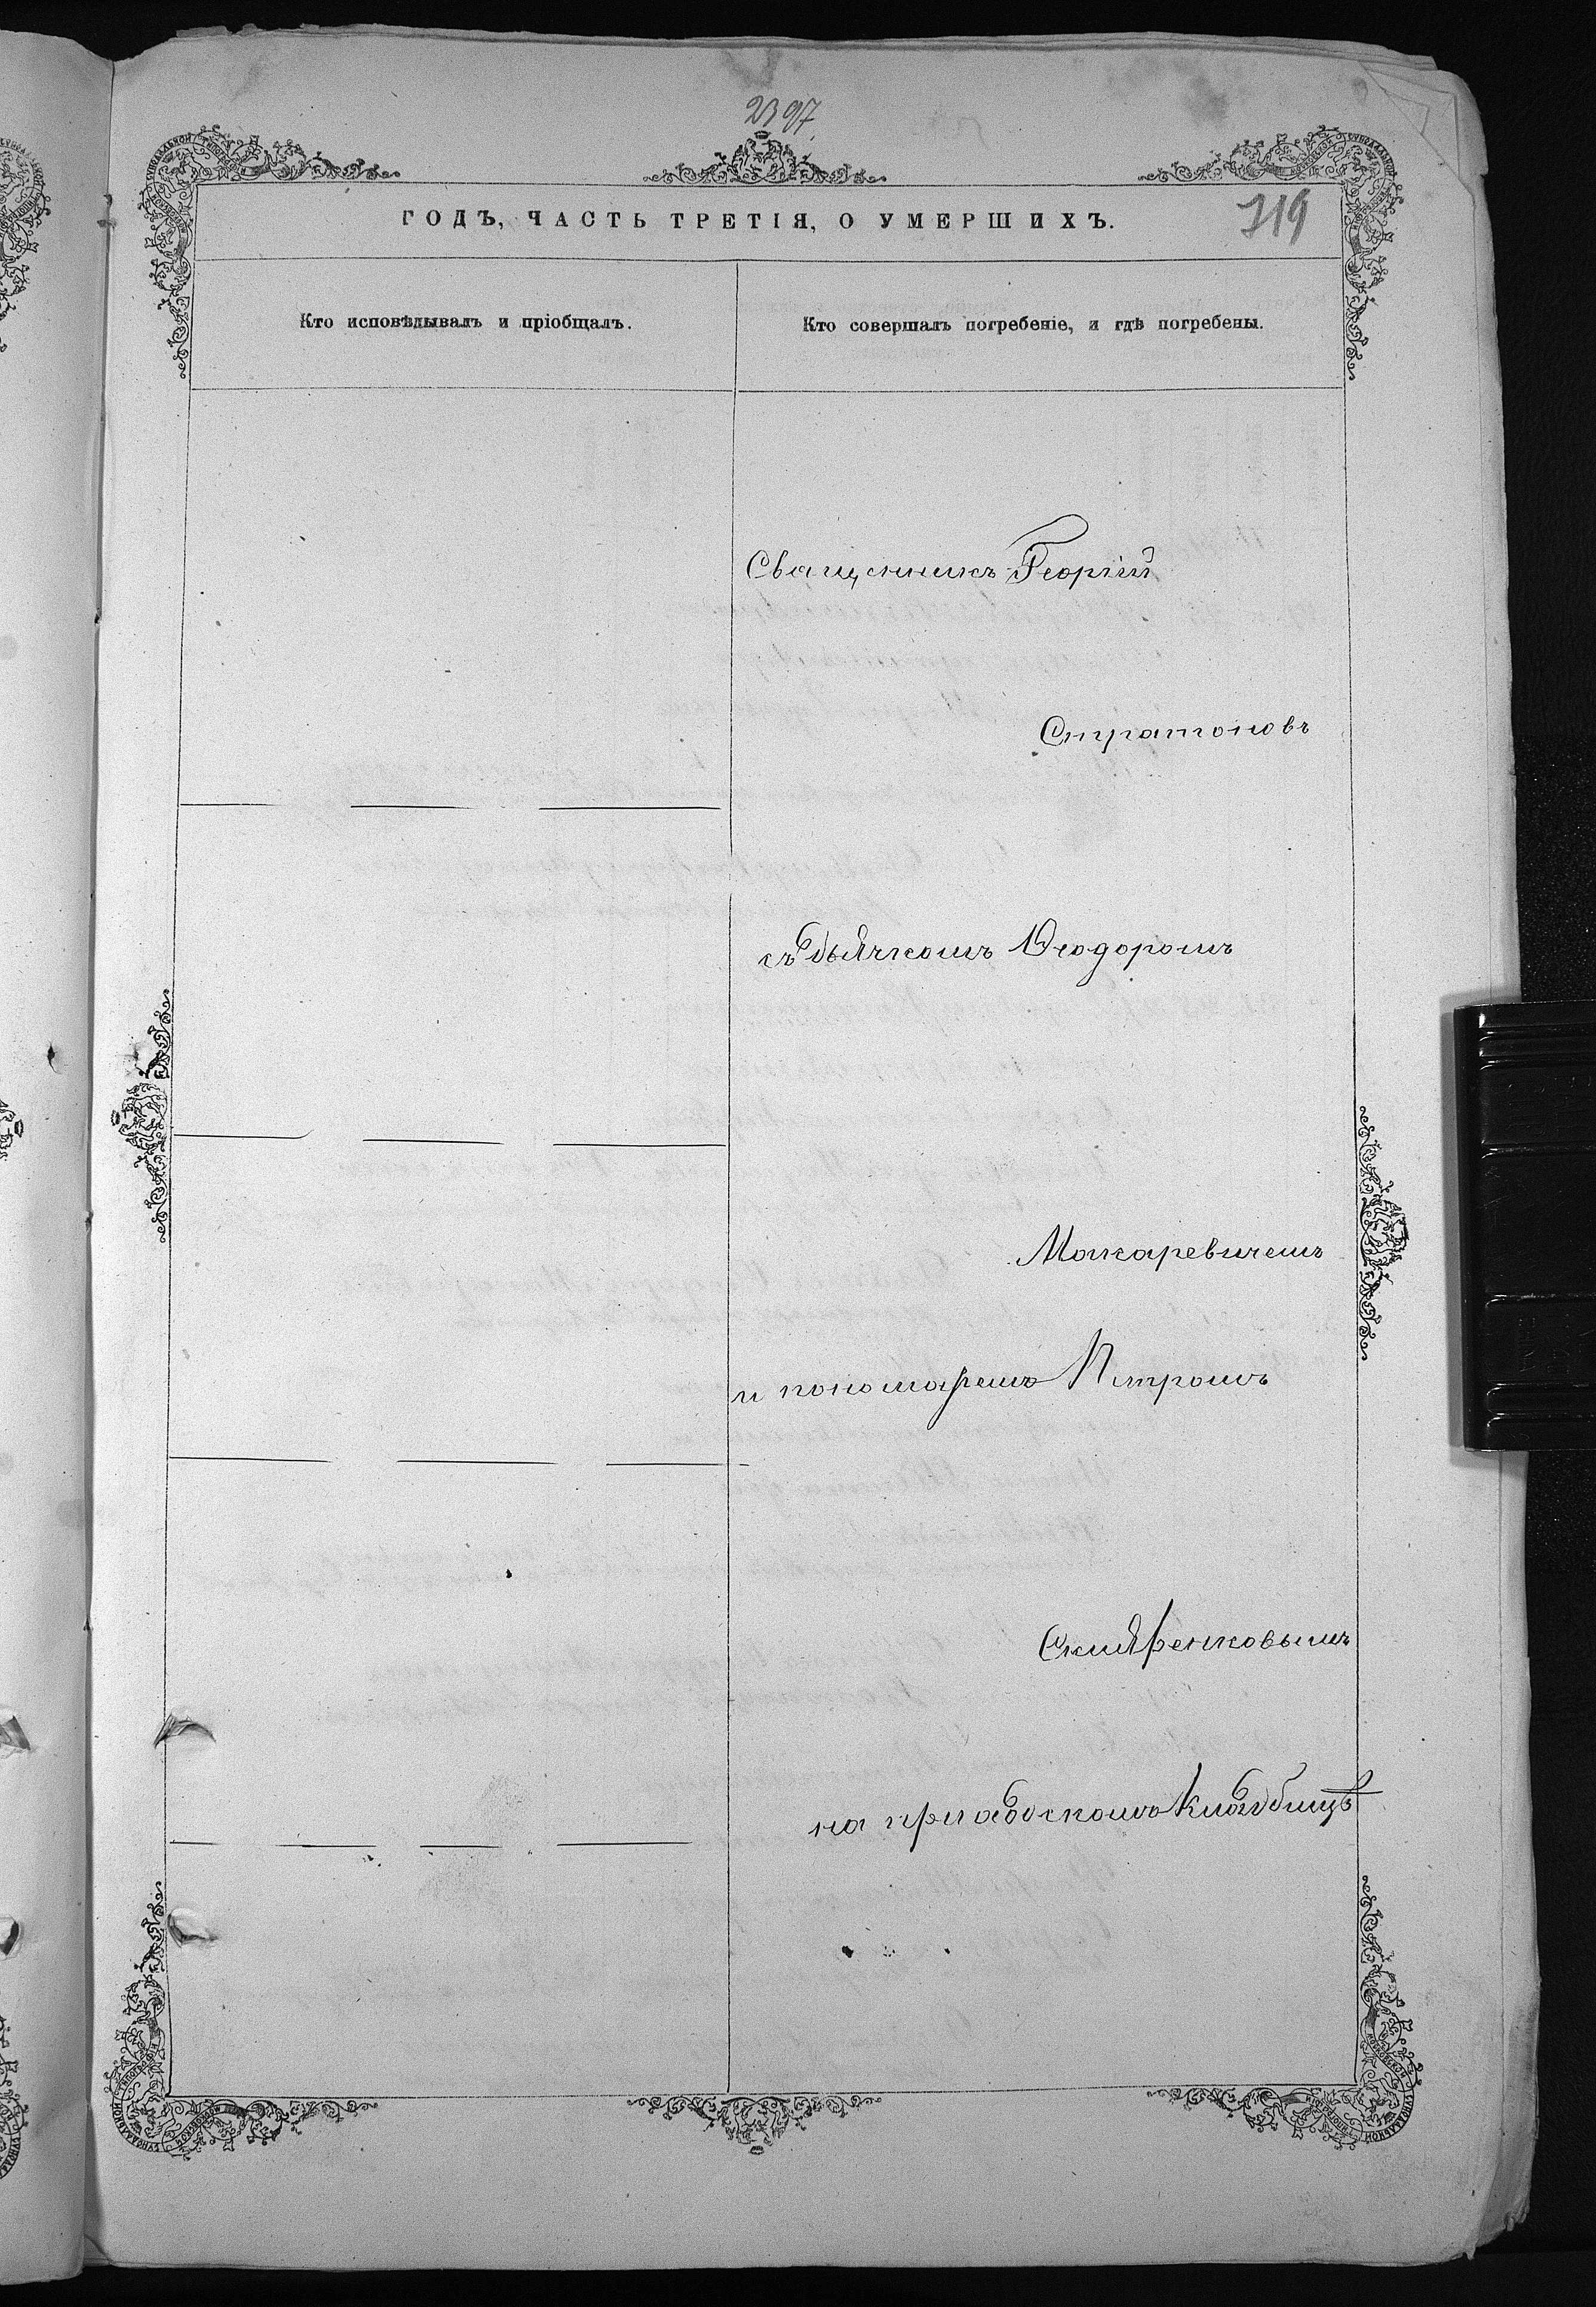 2397
ГОДЪ, ЧАСТЬ ТРЕТІЯ, О УМЕРШИХЪ.
719
Кто исповѣдывалъ и пріобщалъ.
Кто совершалъ погребеніе, и гдѣ погребены.
Священникъ Георгій
Стратоновъ
съ дьячкомъ Ѳеодоромъ
Макаревичемъ
и пономаремъ Петромъ
Скляренковымъ
на приходскомъ кладбищѣ